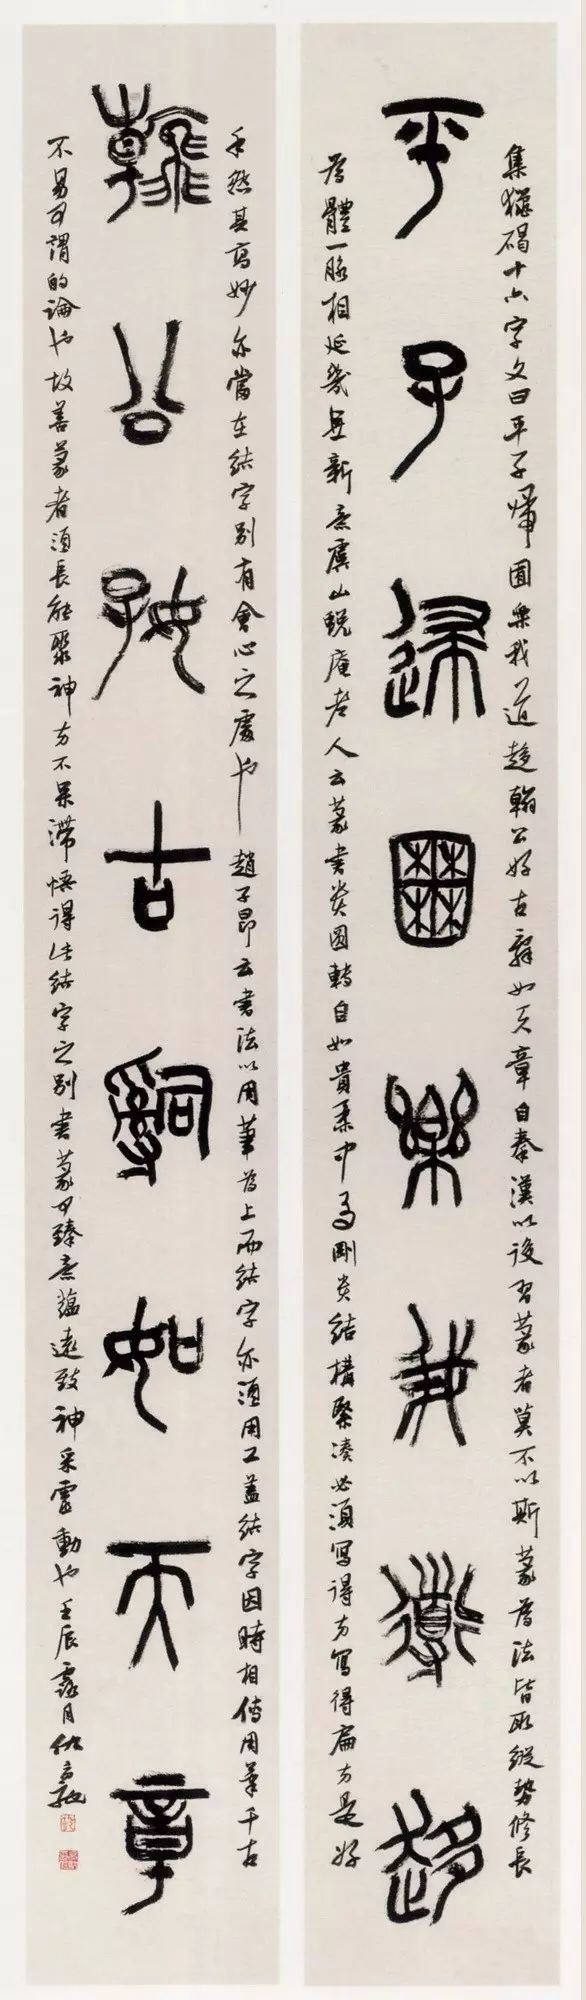 集獵碣十六字文曰平子歸囿樂我道趍翰公好古辭如天章自秦漢以後習篆者莫不以斯篆為法皆取縱勢修長
平子歸囿樂我道趍
為體一脈相延幾無新意虞山蛻庵老人云篆書貴圓轉自如貴柔中的剛貴結構緊湊必須寫得方寫得扁方是好
手然其高妙亦當在結字別有會心之處也趙子昂云書法以用筆為上而結字亦須用工蓋結字因時相傳用筆千古
翰公好古辭如天章
不易可謂的論也故善篆者須長能聚神方不呆滯悟得此結字之別書篆可臻意蘊遠致神采靈動也壬辰露月